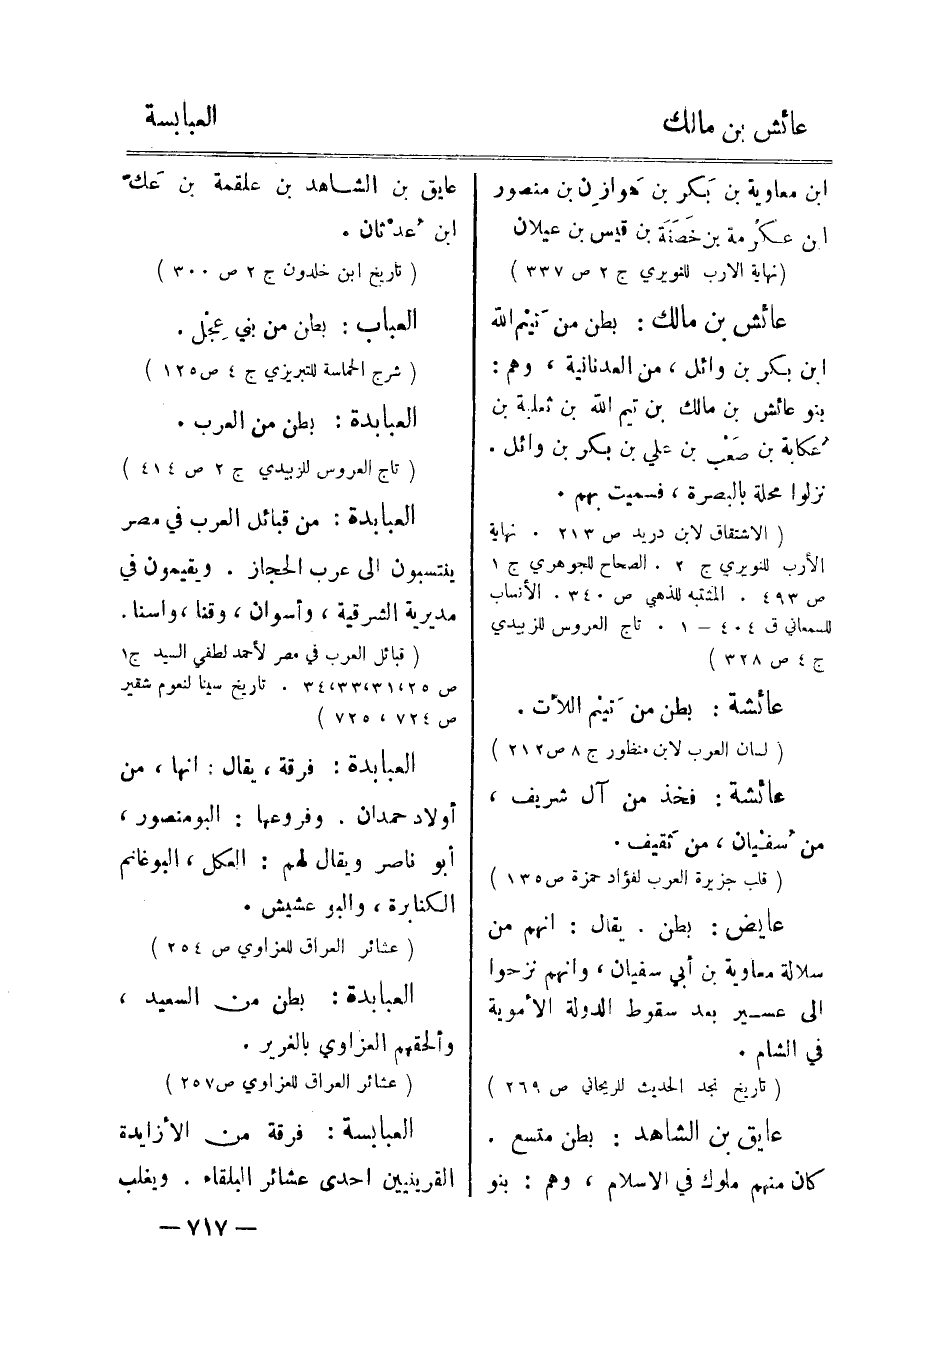 عائش بن مالك
العبابسة
ابن معاوية بن بَكر بن هَوازِن بن منصور
ابن عكْرمة بن خَصَفَة بن قيس بن عيلان
(نهاية الارب للنويري ج ٢ ص ٣٣٧ )
عائش بن مالك : بطن من تَيْم الله
ابن بكر بن وائل ، من العدنانية ، وهم :
بنو عائش بن مالك بن تيم الله بن ثعلبة بن
عُكابة بن صَعْب بن علي بن بكر بن وائل .
نزلوا محلة بالبصرة ، فسميت بهم .
( الاشتقاق لابن دريد ص ٢١٣ . نهاية
الأرب للنويري ج ٢ . الصحاح للجوهري ج ١
ص ٤٩٣ . المشتبه للذهبي ص ٣٤٠ . الأنساب
للسمعاني ق ٤٠٤ – ١ . تاج العروس للزبيدي
ج ٤ ص ٣٢٨ )
عائشة : بطن من تَيْم اللاّت .
( لسان العرب لابن منظور ج ٨ ص ٢١٢ )
عائشة : فخذ من آل شريف ،
من سُفيان ، من ثَقيف .
( قلب جزيرة العرب لفؤاد حمزة ص ١٣٥ )
عايض : بطن . يقال : انهم من
سلالة معاوية بن أبي سفيان ، وانهم نزحوا
الى عسير بعد سقوط الدولة الأموية
في الشام .
( تاريخ نجد الحديث للريحاني ص ٢٦٩ )
عايق بن الشاهد : بطن متسع .
كان منهم ملوك في الاسلام ، وهم : بنو
عايق بن الشاهد بن علقمة بن عَكّ
ابن عُدْثان .
( تاريخ ابن خلدون ج ٢ ص ٣٠٠ )
العباب : بطن من بني عِجْل .
( شرح الحماسة للتبريزي ج ٤ ص ١٢٥ )
العبابدة : بطن من العرب .
( تاج العروس للزبيدي ج ٢ ص ٤١٤ )
العبابدة : من قبائل العرب في مصر
ينتسبون الى عرب الحجاز . ويقيمون في
مديرية الشرقية ، وأسوان ، وقنا ، واسنا .
( قبائل العرب في مصر لأحمد لطفي السيد ج١
ص ٢٥،٣١،٣٣،٣٤ . تاريخ سينا لنعوم شقير
ص ٧٢٤ ، ٧٢٥ )
العبابدة : فرقة ، يقال : انها ، من
أولاد حمدان . وفروعها : البومنصور ،
أبو ناصر ويقال لهم : العكل ، البوغانم
الكنابرة ، والبو عشيش .
( عشائر العراق للعزاوي ص ٢٥٤ )
العبابدة : بطن من السعيد ،
وألحقهم العزاوي بالغرير .
( عشائر العراق للعزاوي ص ٢٥٧ )
العبابسة : فرقة من الأزايدة
القرينيين احدى عشائر البلقاء . ويغلب
— ٧١٧ —